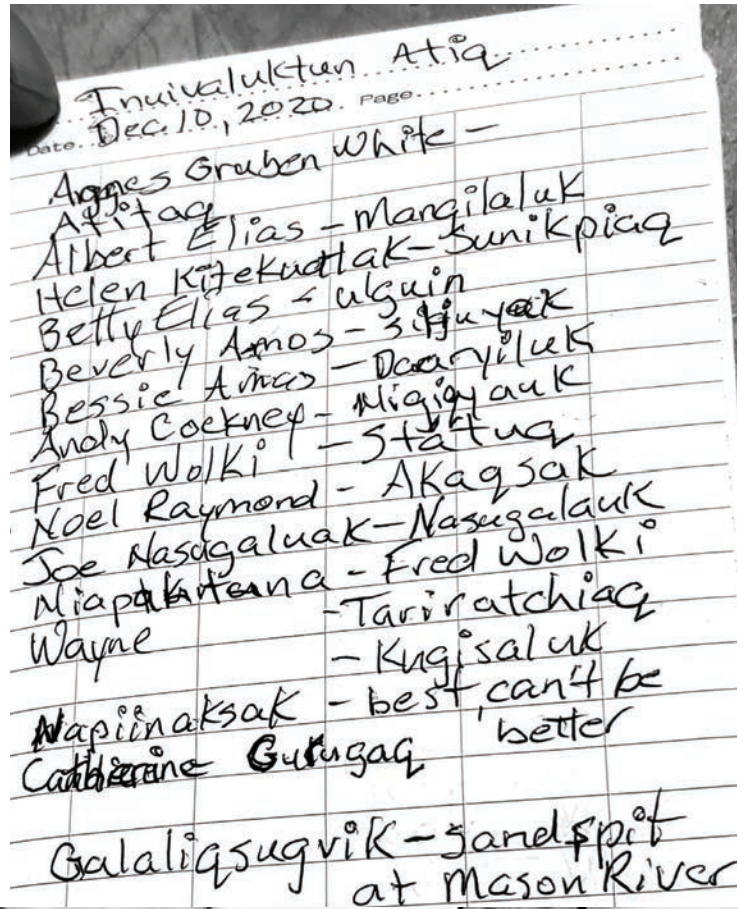 Inuivaluktun Atiq
Date Dec. 10, 2020. Page
Agnes Gruben White -
Atitaq
Albert Elias - Mangilaluk
Helen Kitekudlak - Sunikpiaq
Betty Elias - ulguin
Beverly Amos -
Bessie Amos -
Andy Cockney -
Fred Wolki -
Noel Raymond - Akaqsak
Joe Nasagaluak - Nasugalauk
- Fred Wolki
Wayne - Tariratchiaq
- Kugisaluk
Napiinaksak - best, can't be
better
Catherine
Galaliqsugvik - sandspit
at Mason River